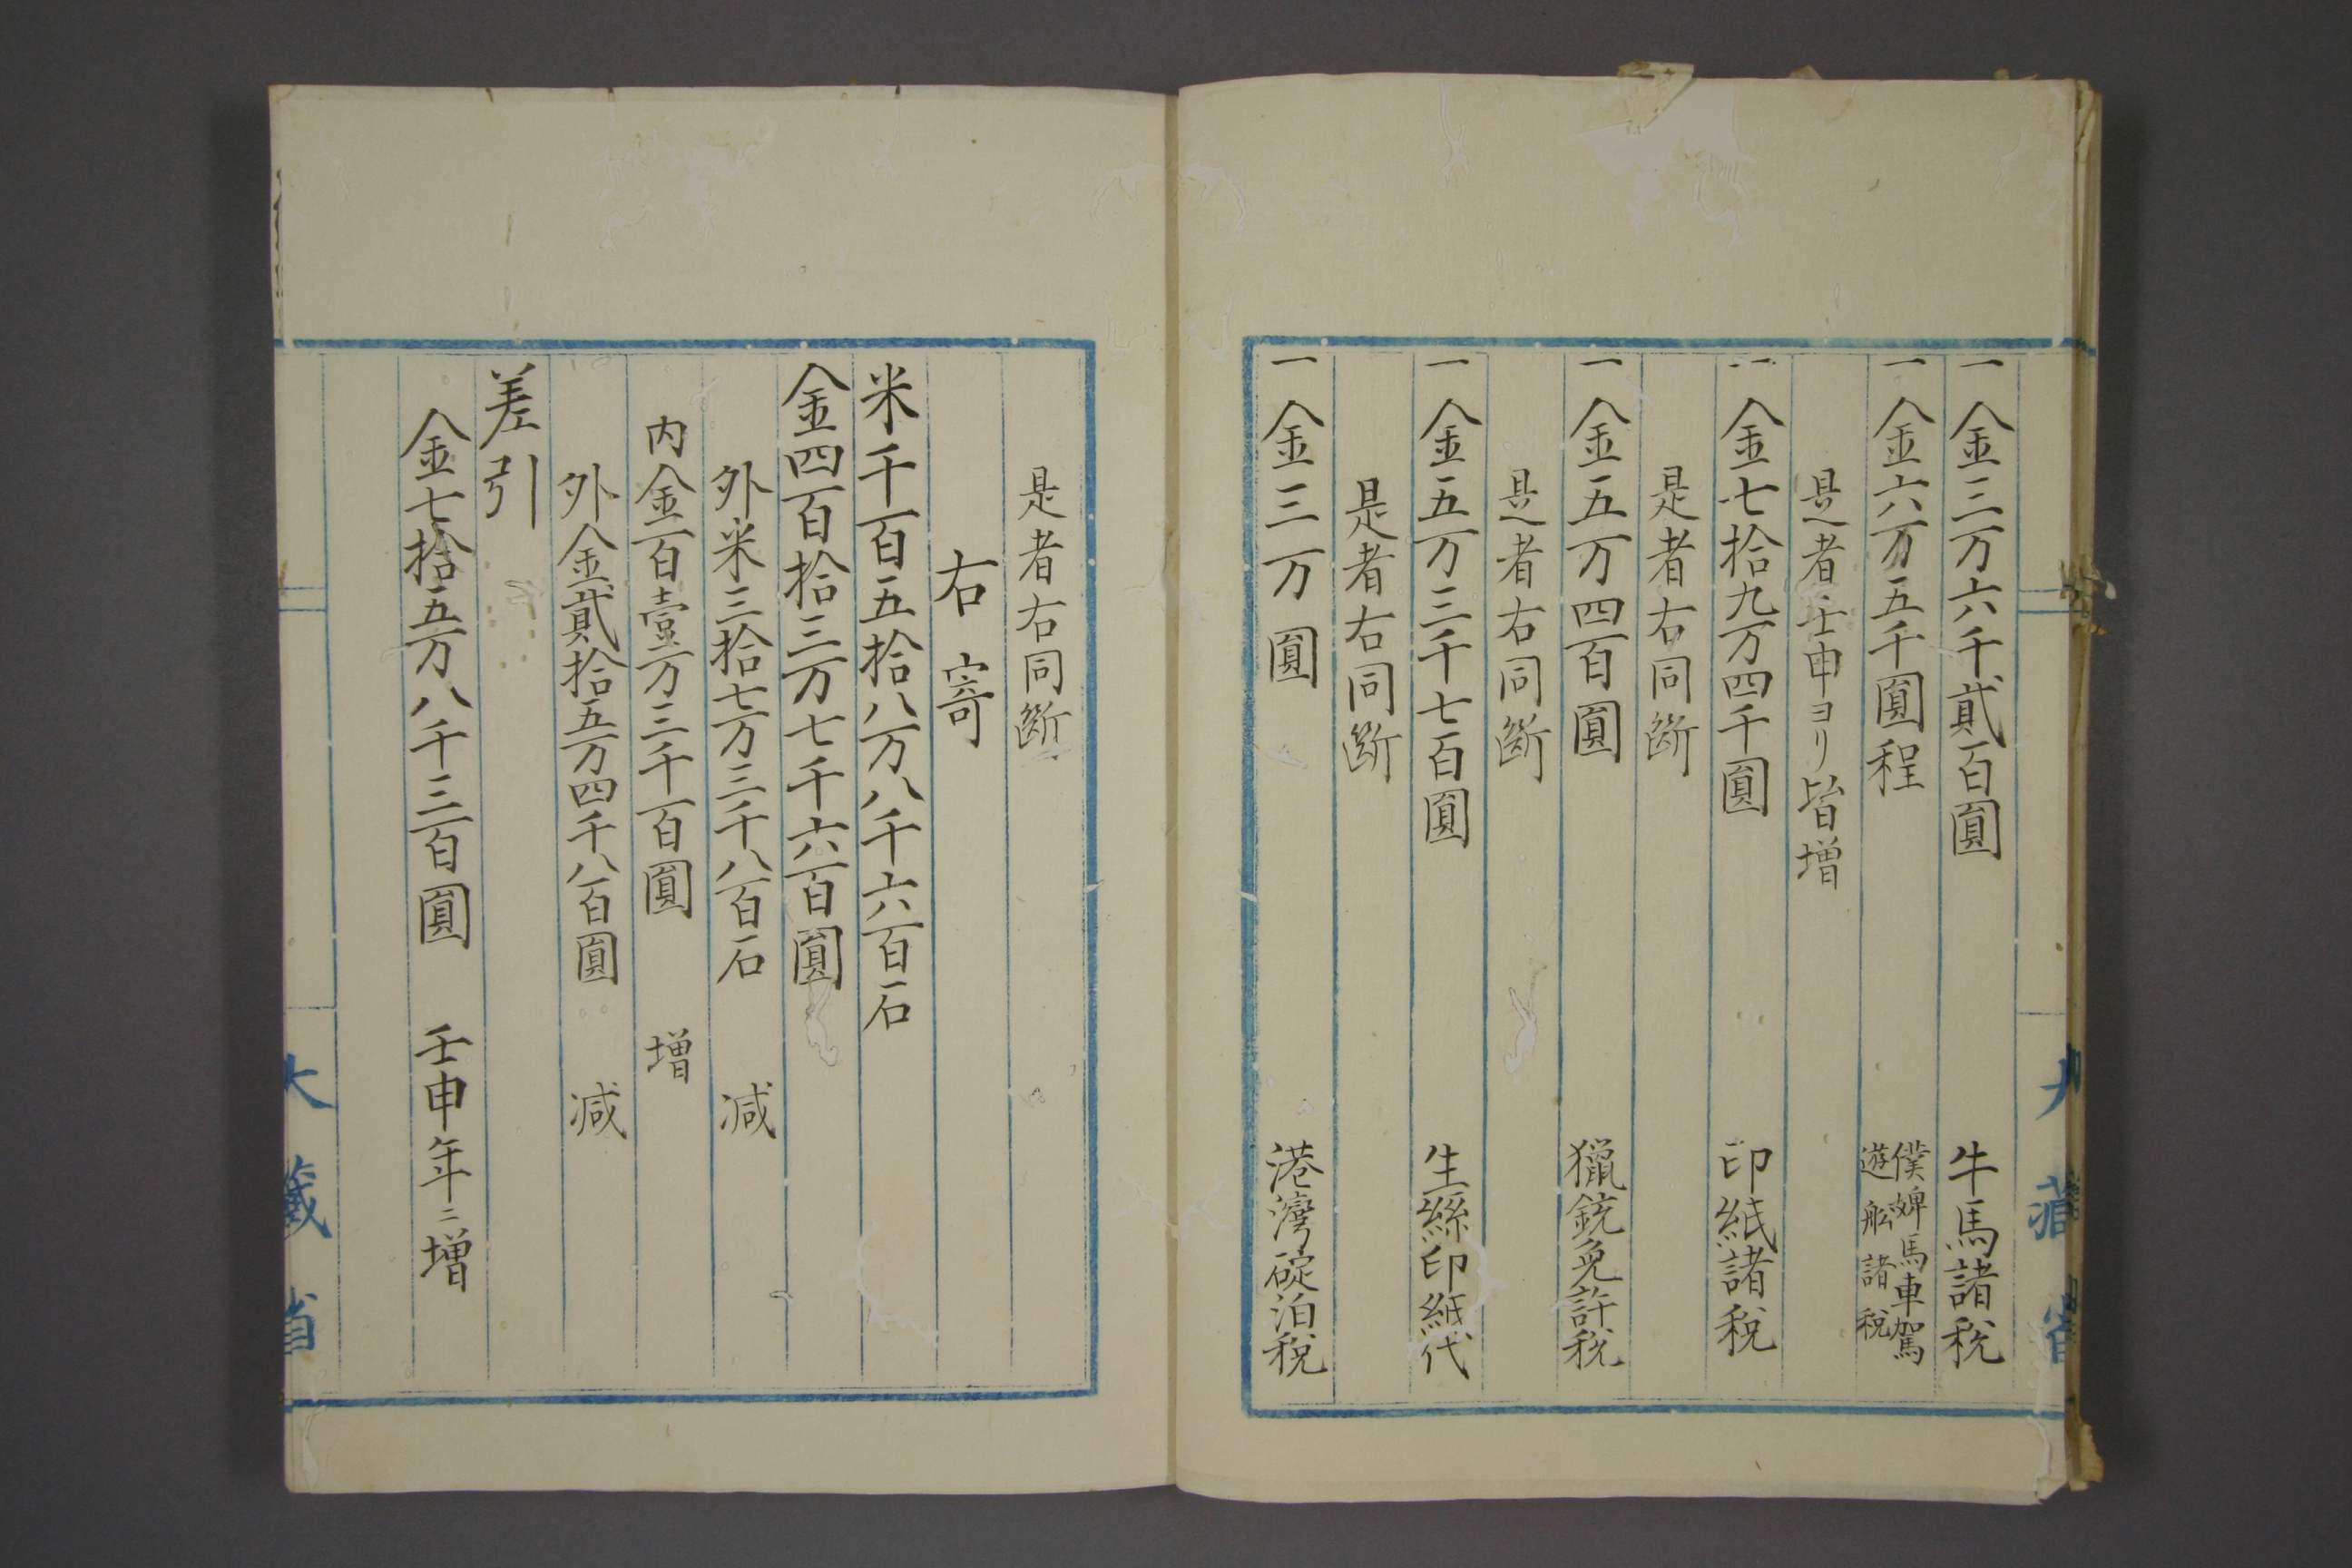 一金三万六千貮百圓 牛馬諸税
一金六万五千圓程 僕婢馬車駕
遊船諸税
是者壬申ヨリ皆増
一金七拾九万四千圓 印紙諸税
是者右同断
一金五万四百圓 獵銃免許税
是者右同断
一金五万三千七百圓 生絲印紙代
是者右同断
一金三万圓 港灣碇泊税
大藏省
是者右同断
右寄
米千百五拾八万八千六百石
金四百拾三万七千六百圓
外米三拾七万三千八百石 減
内金百壹万三千百圓 増
外金貮拾五万四千八百圓 減
差引
金七拾五万八千三百圓 壬申年ニ増
大藏省